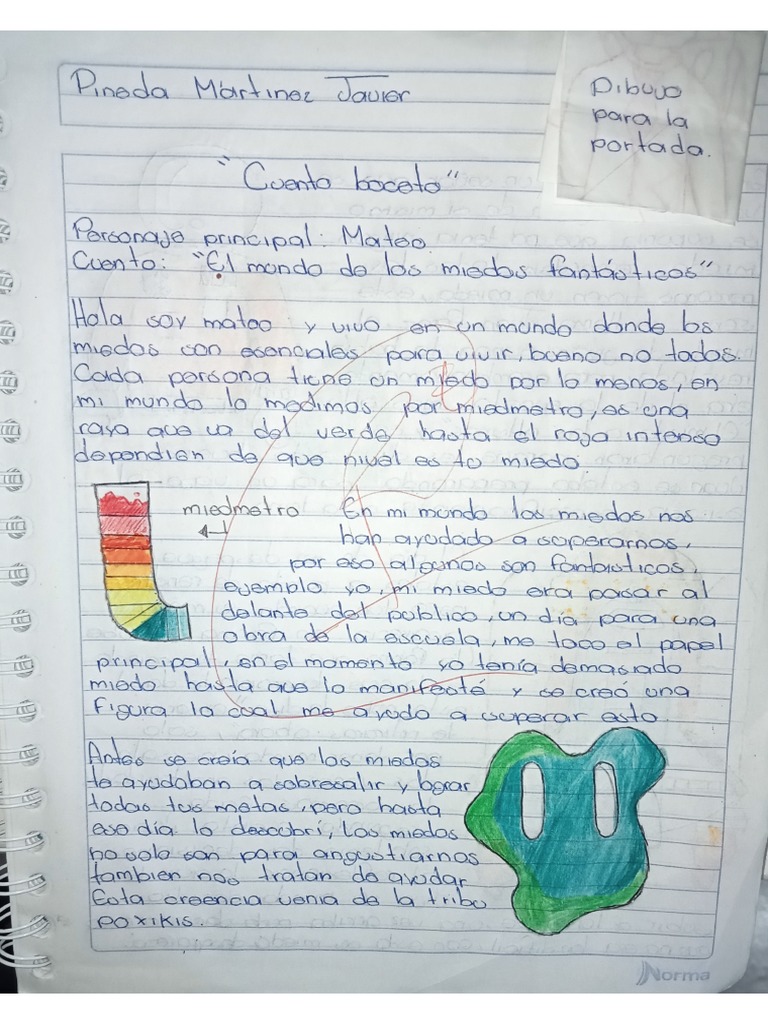 Pineda Mártinez Javier
Dibujo
para la
portada.
"Cuento boceto"
Personaje principal: Mateo
Cuento: "El mundo de los miedos fantásticos"
Hola soy mateo y vivo en un mundo donde los
miedos son esenciales para vivir, bueno no todos.
Cada persona tiene un miedo por lo menos, en
mi mundo lo medimos por miedmetro, es una
raya que va del verde hasta el rojo intenso
dependien de que nivel es to miedo.
miedmetro
En mi mundo los miedos nos
han ayudado a superarnos,
por eso algunos son fantasticos,
ejemplo yo, mi miedo era pasar al
delante del publico, un día para una
obra de la escuela, me toco el papel
principal, en el momento yo tenía demasiado
miedo hasta que lo manifesté y se creó una
figura la cual me ayudo a superar esto.
Antes se creía que los miedos
te ayudaban a sobresalir y lograr
todas tus metas, pero hasta
ese día lo descubrí, Los miedos
no solo son para angustiarnos
tambien nos tratan de ayudar
Esta creencia venia de la tribu
poxikis.
Norma